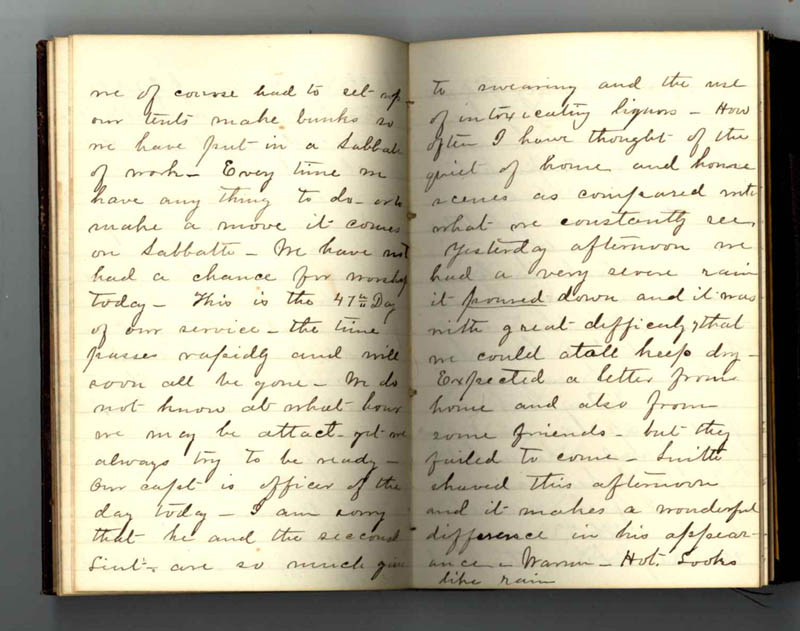 we of course had to set up
our tents make bunks so
we have put in a Sabbath
of work - Every time we
have any thing to do - or to
make a move it comes
on Sabbath - We have not
had a chance for worship
today - This is the 47th Day
of our service - the time
passes rapidly and will
soon all be gone - We do
not know at what hour
we may be attact - yet we
always try to be ready -
Our capt is officer of the
day today - I am sorry
that he and the seccond
Liut - are so much give
to swearing and the use
of intoxicating liquors - How
often I have thought of the
quiet of home and home
scenes as compared with
what we constantly see,
Yesterday afternoon we
had a very severe rain
it poured down and it was
with great difficulty that
we could atall keep dry -
Expected a letter from
home and also from
some friends - but they
failed to come - Smith
shaved this afternoon
and it makes a wonderful
difference in his appear-
ance - Warm - Hot. Looks
like rain